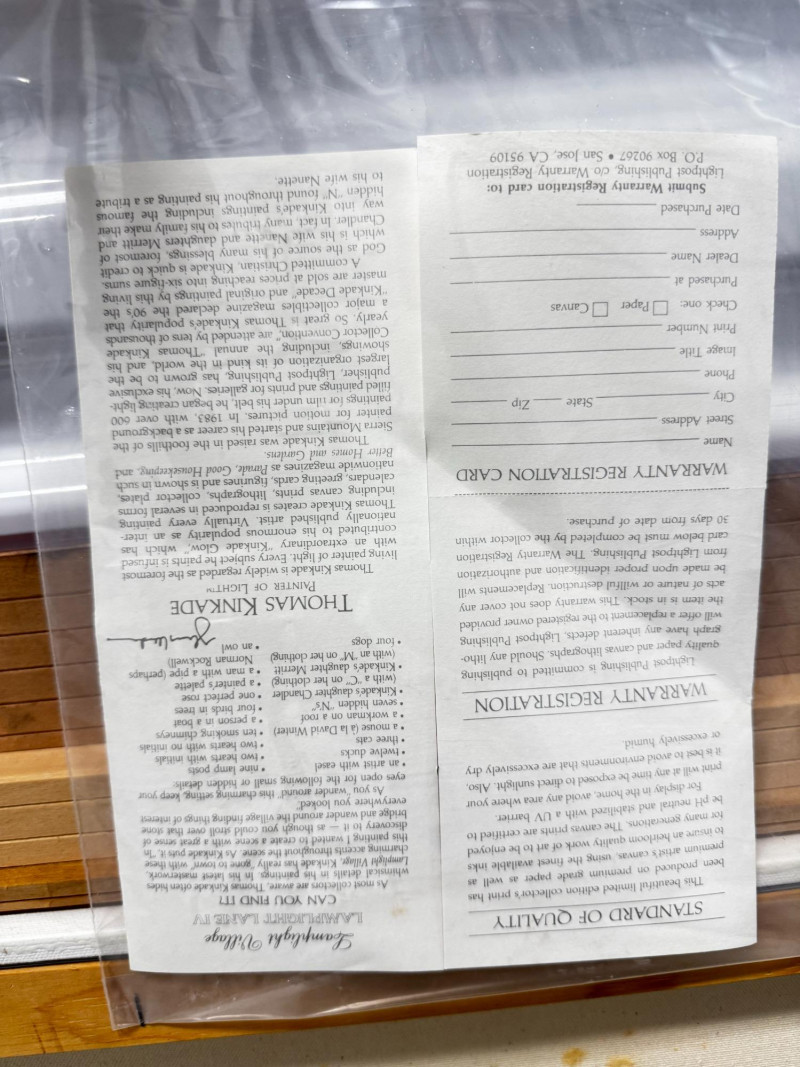 STANDARD OF QUALITY
This beautiful limited edition collector's print has
been produced on premium grade paper as well as
premium artist's canvas, using the finest available inks
to insure an heirloom quality work of art to be enjoyed
for many generations. The canvas prints are certified to
be pH neutral and stabilized with a UV barrier.
For display in the home, avoid any area where your
print will at any time be exposed to direct sunlight. Also,
it is best to avoid environments that are excessively dry
or excessively humid.
WARRANTY REGISTRATION
Lightpost Publishing is committed to publishing
quality paper and canvas lithographs. Should any litho-
graph have any inherent defects, Lightpost Publishing
will offer a replacement to the registered owner provided
the item is in stock. This warranty does not cover any
acts of nature or willful destruction. Replacements will
be made upon proper identification and authorization
from Lightpost Publishing. The Warranty Registration
card below must be completed by the collector within
30 days from date of purchase.
WARRANTY REGISTRATION CARD
Name
Street Address
City State Zip
Phone
Image Title
Print Number
Check one: Paper Canvas
Purchased at
Dealer Name
Address
Date Purchased
Submit Warranty Registration card to:
Lightpost Publishing, c/o Warranty Registration
P.O. Box 90267 • San Jose, CA 95109
Lamplight Village
LAMPLIGHT LANE IV
CAN YOU FIND IT?
As most collectors are aware, Thomas Kinkade often hides
whimsical details in his paintings. In his latest masterwork,
Lamplight Village, Kinkade has really "gone to town" with these
charming accents throughout the scene. As Kinkade puts it, "In
this painting I wanted to create a scene with a great sense of
discovery to it — as though you could stroll over that stone
bridge and wander around the village finding things of interest
everywhere you looked."
As you "wander around" this charming setting, keep your
eyes open for the following small or hidden details:
• an artist with easel
• twelve ducks
• three cats
• a mouse (à la David Winter)
• a workman on a roof
• seven hidden "N's"
• Kinkade's daughter Chandler
(with a "C" on her clothing)
• Kinkade's daughter Merritt
(with an "M" on her clothing)
• four dogs
• nine lamp posts
• two hearts with initials
• two hearts with no initials
• ten smoking chimneys
• a person in a boat
• four birds in trees
• one perfect rose
• a painter's palette
• a man with a pipe (perhaps
Norman Rockwell)
• an owl
THOMAS KINKADE
PAINTER OF LIGHT™
Thomas Kinkade is widely regarded as the foremost
living painter of light. Every subject he paints is infused
with an extraordinary "Kinkade Glow," which has
contributed to his enormous popularity as an inter-
nationally published artist. Virtually every painting
Thomas Kinkade creates is reproduced in several forms
including canvas prints, lithographs, collector plates,
calendars, greeting cards, figurines and is shown in such
nationwide magazines as Parade, Good Housekeeping, and
Better Homes and Gardens.
Thomas Kinkade was raised in the foothills of the
Sierra Mountains and started his career as a background
painter for motion pictures. In 1983, with over 600
paintings for film under his belt, he began creating light-
filled paintings and prints for galleries. Now, his exclusive
publisher, Lightpost Publishing, has grown to be the
largest organization of its kind in the world, and his
showings, including the annual "Thomas Kinkade
Collector Convention," are attended by tens of thousands
yearly. So great is Thomas Kinkade's popularity that
a major collectibles magazine declared the 90's the
"Kinkade Decade" and original paintings by this living
master are sold at prices reaching into six-figure sums.
A committed Christian, Kinkade is quick to credit
God as the source of his many blessings, foremost of
which is his wife Nanette and daughters Merritt and
Chandler. In fact, many tributes to his family make their
way into Kinkade's paintings including the famous
hidden "N" found throughout his painting as a tribute
to his wife Nanette.